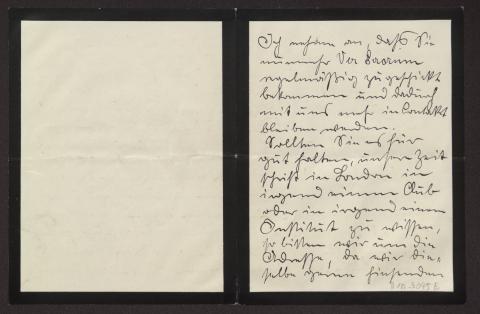 Ich nehme an, daß Sie
nunmehr Ver Sacrum
regelmäßig zugeschickt
bekommen und dadurch
mit uns mehr in Contakt
bleiben werden.
Sollten Sie es für
gut halten, unsere Zeit
schrift in London in
irgend einem Club
oder in irgend einem
Institut zu wissen,
so bitten wir um die
Adresse, da wir die-
selbe gerne hinsenden